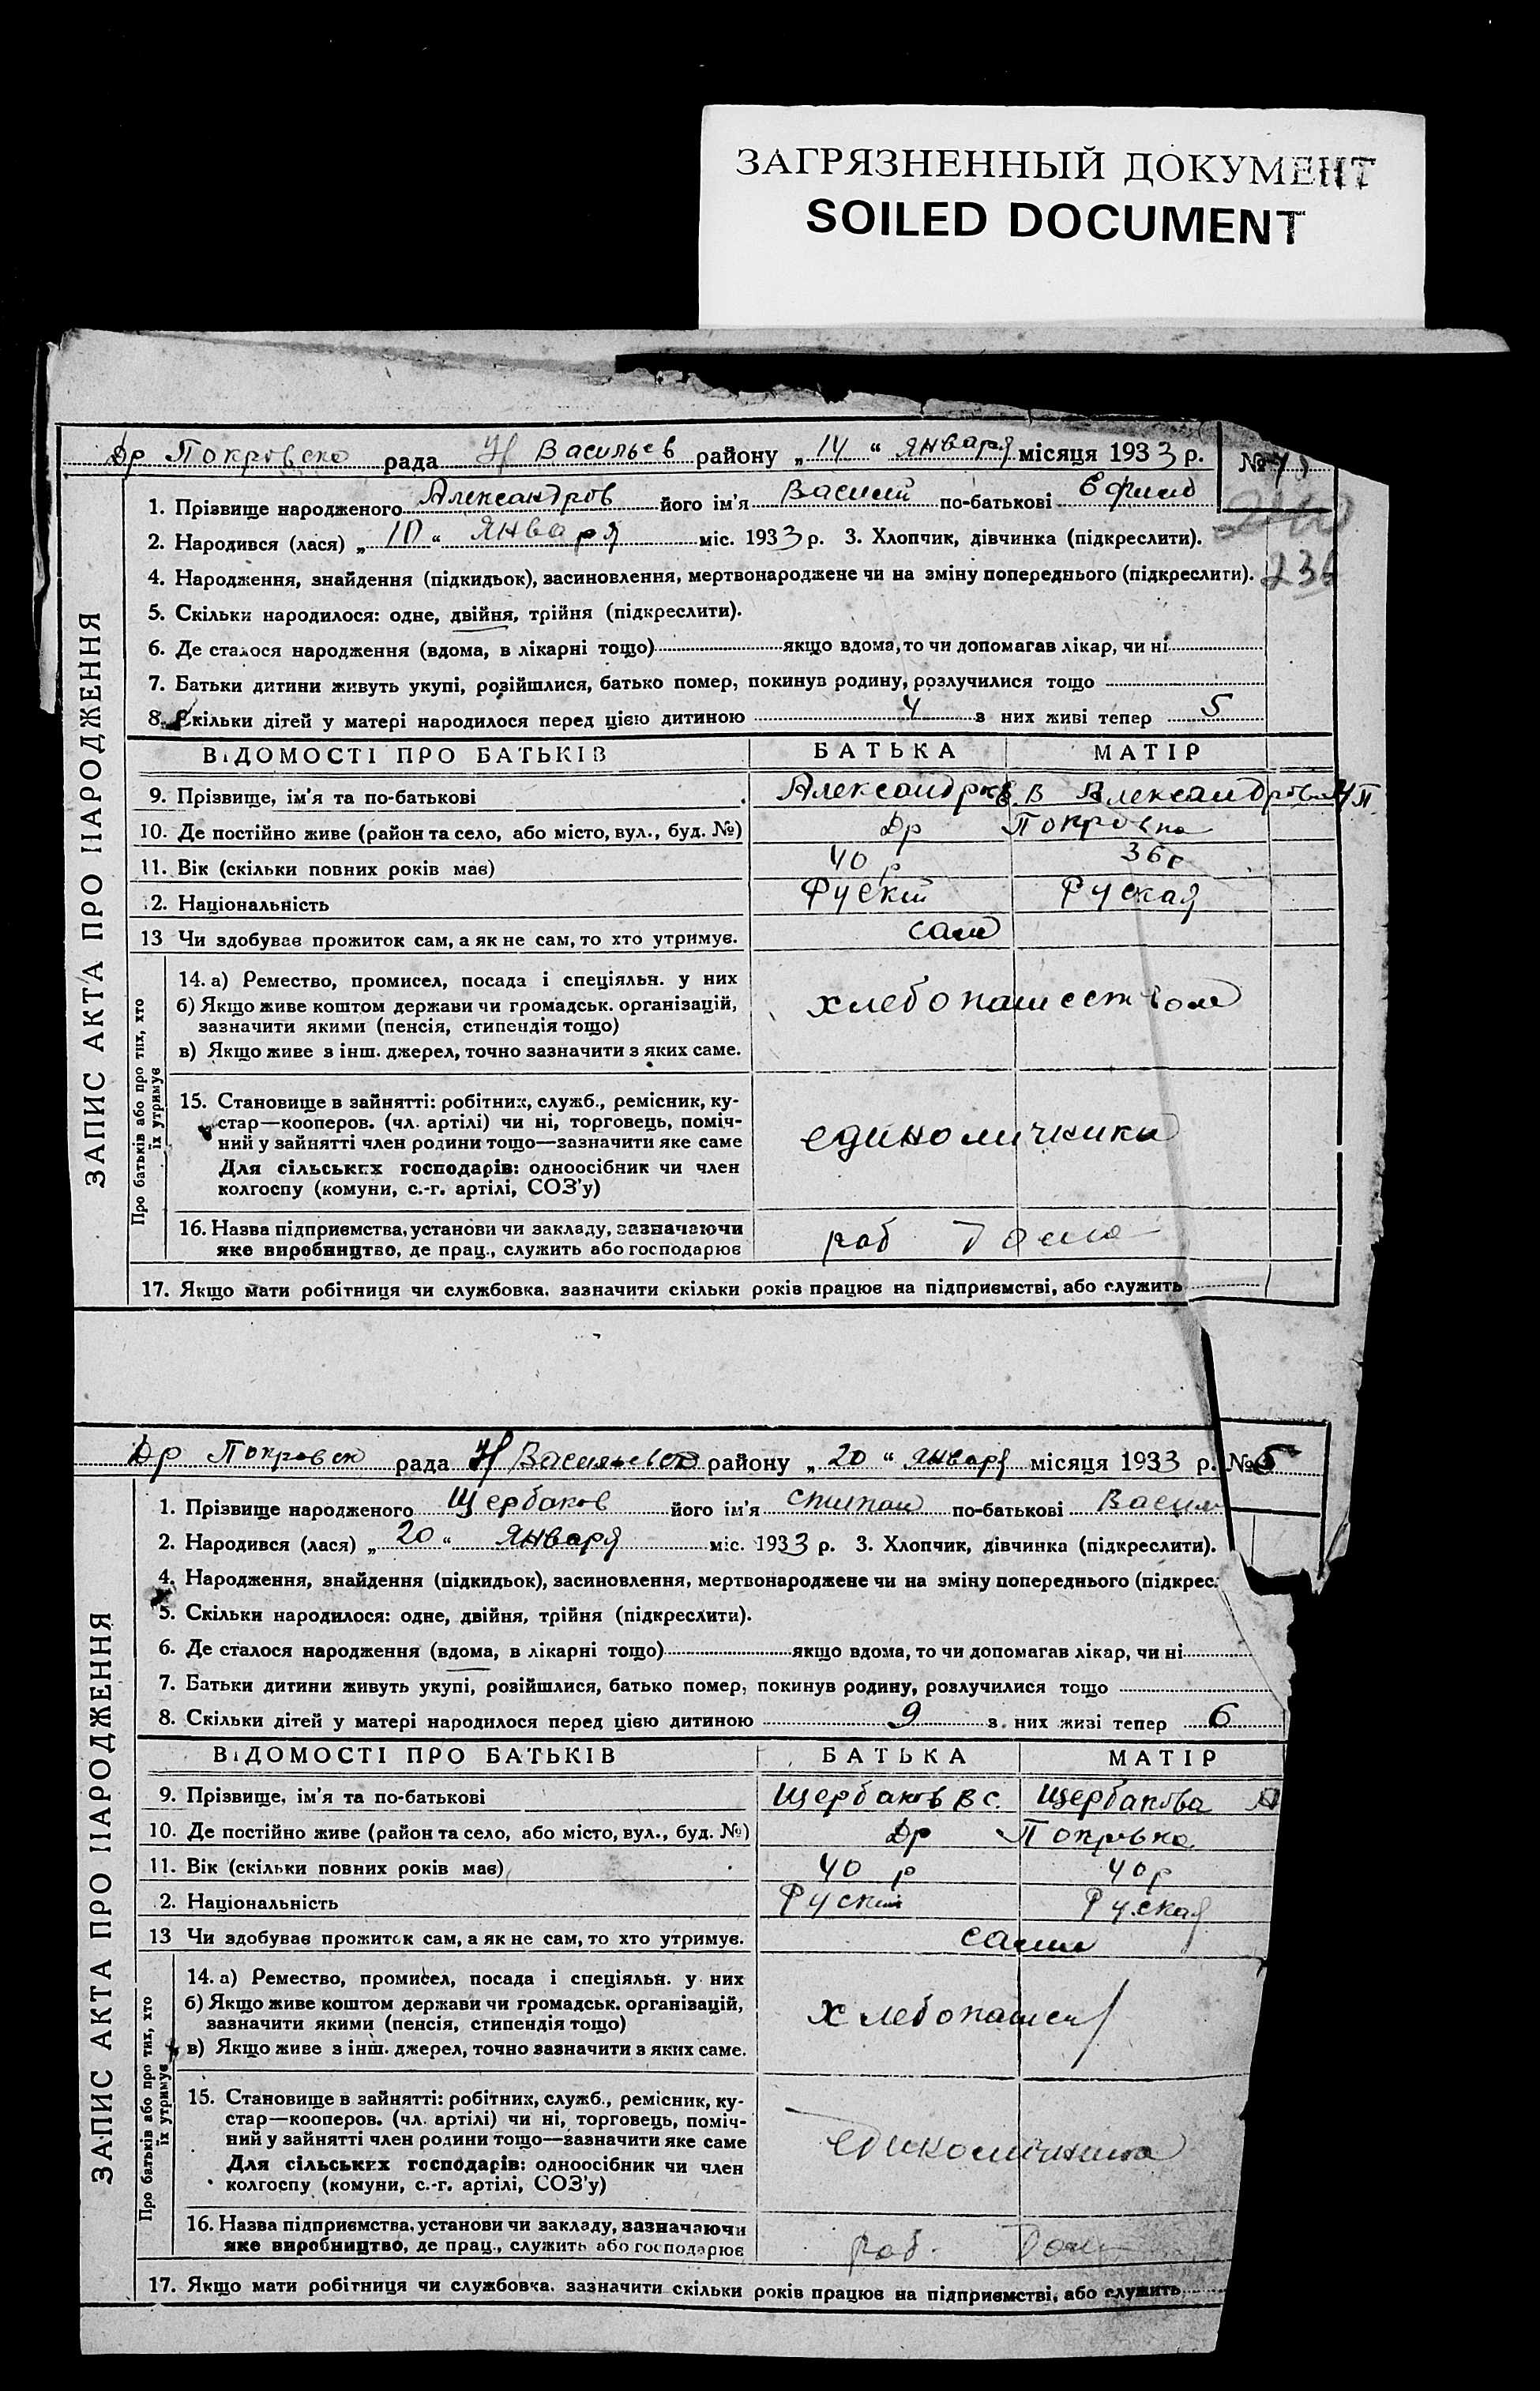 ЗАГРЯЗНЕННЫЙ ДОКУМЕНТ
SOILED DOCUMENT
Др Покровско рада Н Васильев району „14“ января місяця 1933 р. №
1. Прізвище народженого Александров його ім'я Василий по-батькові Ефимо
2. Народився (лася) „10“ января міс. 1933 р. 3. Хлопчик, дівчинка (підкреслити).
4. Народження, знайдення (підкидьок), засиновлення, мертвонароджене чи на зміну попереднього (підкреслити). 236
5. Скільки народилося: одне, двійня, трійня (підкреслити).
6. Де сталося народження (вдома, в лікарні тощо) якщо вдома, то чи допомагав лікар, чи ні
7. Батьки дитини живуть укупі, розійшлися, батько помер, покинув родину, розлучилися тощо
8. Скільки дітей у матері народилося перед цією дитиною 4 з них живі тепер 5
ЗАПИС АКТА ПРО НАРОДЖЕННЯ
ВІДОМОСТІ ПРО БАТЬКІВ БАТЬКА МАТІР
9. Прізвище, ім'я та по-батькові Александров Александрова
10. Де постійно живе (район та село, або місто, вул., буд. №) Др Покровка
11. Вік (скільки повних років має) 40 р 36
2. Національність Руский Руская
13 Чи здобуває прожиток сам, а як не сам, то хто утримує. сами
Про батьків або про тих, хто їх утримує
14. а) Ремество, промисел, посада і спеціяльн. у них
б) Якщо живе коштом держави чи громадськ. організацій,
зазначити якими (пенсія, стипендія тощо)
хлебопашеством
в) Якщо живе з інш. джерел, точно зазначити з яких саме.
15. Становище в зайнятті: робітник, служб., ремісник, ку-
стар—кооперов. (чл. артілі) чи ні, торговець, поміч-
ний у зайнятті член родини тощо—зазначити яке саме
единоличника
Для сільських господарів: одноосібник чи член
колгоспу (комуни, с.-г. артілі, СОЗ'у)
16. Назва підприємства, установи чи закладу, зазначаючи
яке виробництво, де прац., служить або господарює раб
17. Якщо мати робітниця чи службовка, зазначити скільки років працює на підприємстві, або служить
Др Покровск рада Н Васильевс району „20“ января місяця 1933 р. № 5
1. Прізвище народженого Щербаков його ім'я Стипан по-батькові Васил
2. Народився (лася) „20“ января міс. 1933 р. 3. Хлопчик, дівчинка (підкреслити).
4. Народження, знайдення (підкидьок), засиновлення, мертвонароджене чи на зміну попереднього (підкрес.
5. Скільки народилося: одне, двійня, трійня (підкреслити).
6. Де сталося народження (вдома, в лікарні тощо) якщо вдома, то чи допомагав лікар, чи ні
7. Батьки дитини живуть укупі, розійшлися, батько помер, покинув родину, розлучилися тощо
8. Скільки дітей у матері народилося перед цією дитиною 9 з них живі тепер 6
ЗАПИС АКТА ПРО НАРОДЖЕННЯ
ВІДОМОСТІ ПРО БАТЬКІВ БАТЬКА МАТІР
9. Прізвище, ім'я та по-батькові Щербаков В С. Щербакова
10. Де постійно живе (район та село, або місто, вул., буд. №) Др Покровка
11. Вік (скільки повних років має) 40 р 40 р
2. Національність Руский Руская
13 Чи здобуває прожиток сам, а як не сам, то хто утримує. сами
Про батьків або про тих, хто їх утримує
14. а) Ремество, промисел, посада і спеціяльн. у них
б) Якщо живе коштом держави чи громадськ. організацій,
зазначити якими (пенсія, стипендія тощо)
хлебопашест
в) Якщо живе з інш. джерел, точно зазначити з яких саме.
15. Становище в зайнятті: робітник, служб., ремісник, ку-
стар—кооперов. (чл. артілі) чи ні, торговець, поміч-
ний у зайнятті член родини тощо—зазначити яке саме
единоличника
Для сільських господарів: одноосібник чи член
колгоспу (комуни, с.-г. артілі, СОЗ'у)
16. Назва підприємства, установи чи закладу, зазначаючи
яке виробництво, де прац., служить або господарює раб.
17. Якщо мати робітниця чи службовка, зазначити скільки років працює на підприємстві, або служить